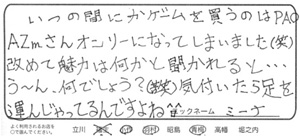 いつの間にかゲームを買うのはPAO
AZmさんオンリーになってしまいました(笑)
改めて魅力は何かと聞かれると…
う〜ん、何でしょう?(笑) 気付いたら足を
運んじゃってるんですよね^^
ックネーム ミーナ
よく利用されるお店を
○で囲んでください。 立川 昭島 高幡 堀之内